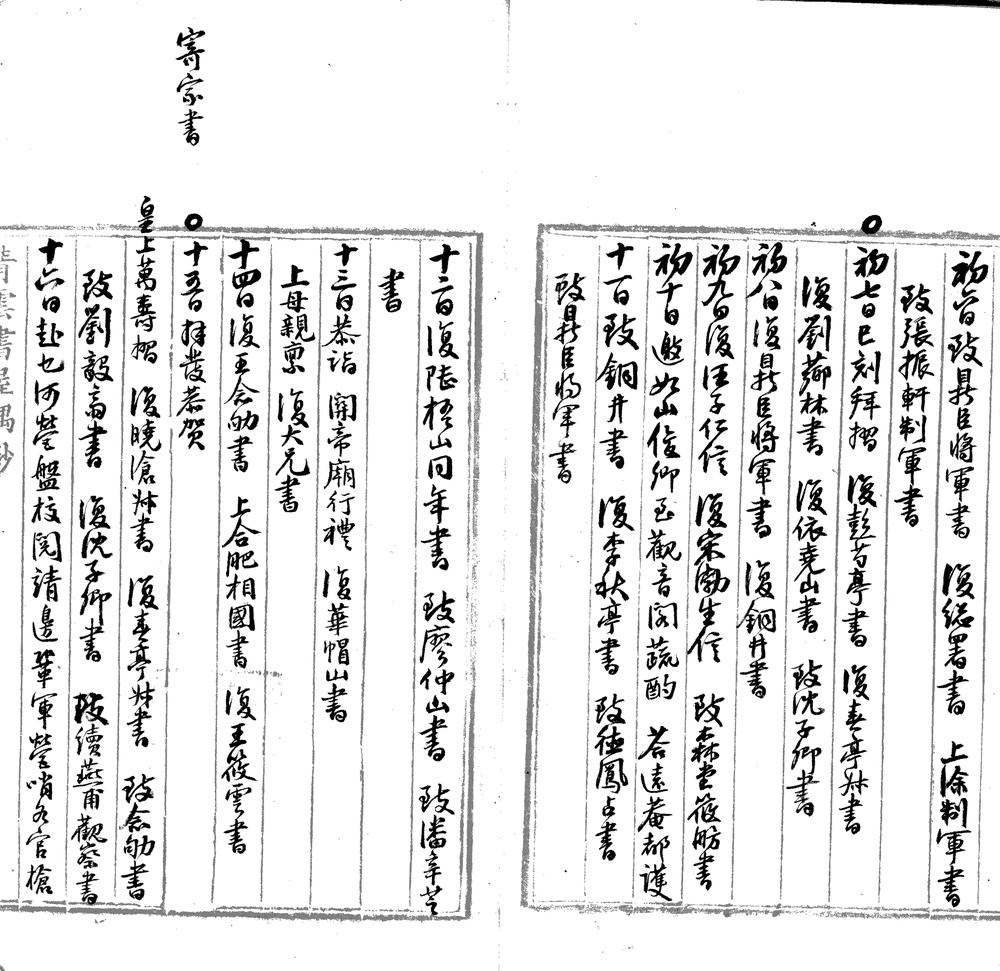 初六日致鼎臣將軍書 復總署書 上涂制軍書
致張振軒制軍書
初七日巳刻拜摺 復彭芍亭書 復春亭牀書
復劉薌林書 復依堯山書 致沈子卿書
初八日復鼎臣將軍書 復銅井書
初九日復汪子仁信 復宋渤生信 致森堂筱舫書
初十日邀如山俊卿至觀音閣蔬酌 答遠菴都護
十一日致銅井書 復李秋亭書 致德鳳占書
致鼎臣將軍書
十二日復陸梧山同年書 致廖仲山書 致潘辛芝
書
十三日恭詣 關帝廟行禮 復華帽山書
上母親稟 復大兄書
十四日復王念劬書 上合肥相國書 復王筱雲書
十五日拜發恭賀
皇上萬壽摺 復曉滄牀書 復春亭牀書 致念劬書
寄宗書
致劉毅齋書 復沈子卿書 致續燕甫觀察書
十六日赴乜河營盤校閱靖邊鞏軍營哨各官槍
青雲書屋偶鈔